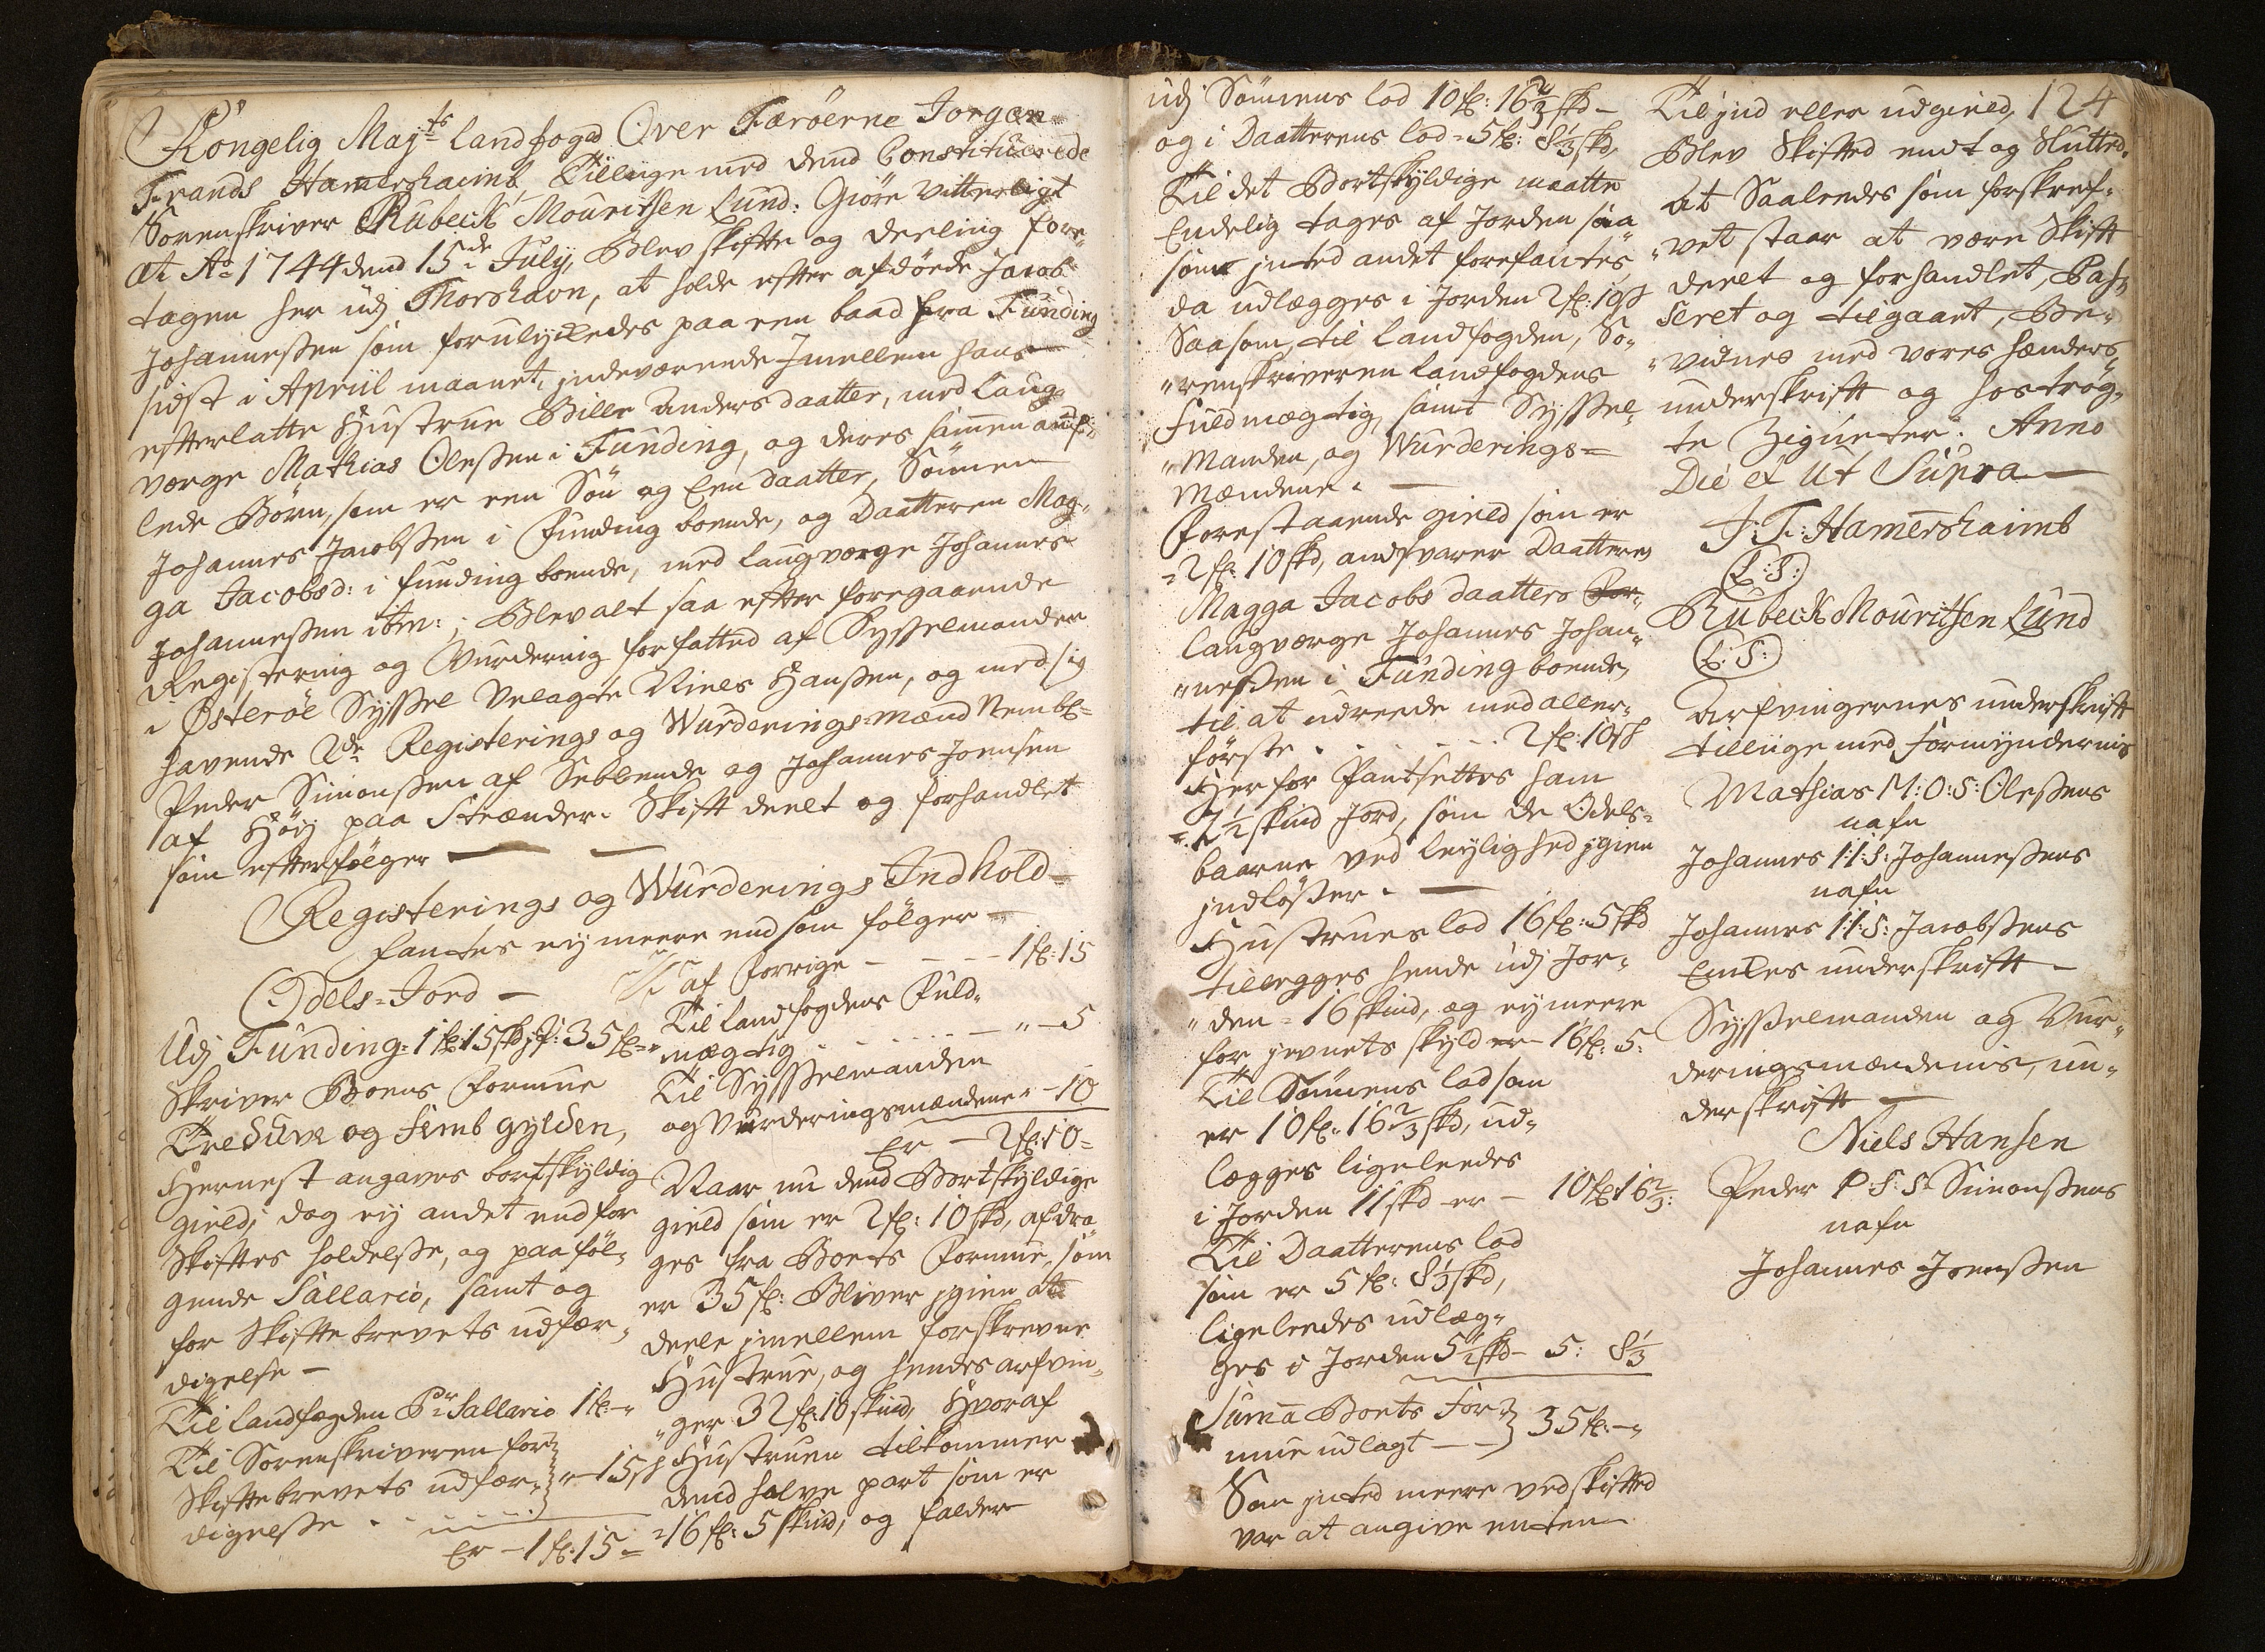 Kongelig Majts landfoged Over Færöerne Jorgen
Frands Hamershaimb, Tillige med dend Constituerede
Sorenskriver Rubeck Mouritsen Lund: Giöre Vitterligt
At Ao 1744 dend 15de July, Blev skifte og deeling fore,
tagen her udj Thorshavn, at holde efter afdöede Jacob
Johannesßen som forulyckedes paa een baad fra Funding
sidst i Apriil maanet, indeværende Imellem hans
efterlatte Hustrue Bille Andersdaatter, med laug,
verge Mathias Olesßen i Funding, og deres sammen aufl,
lede Börn, som er een Sön og Een daatter, Sönnen
Johannes Jacobsßen i Funding boende, og Daatteren Mag,
ga Jacobsd: i funding boende, med laugverge Johannes
Johannesßen ibm:; Blev alt saa efter foregaaende
Registering og Vurdering forfatted af Sysßelmanden
i Österöe Sysßel Velagte Niels Hansßen, og med sig
havende 2de Registerings og Wurderings-mænd Nembl-
Peder Simonsßen af Selletræ og Johannes Joensen
af Höy paa Strænder. Skift deelt og forhandlet
som efterfölger
Registerings og Wurderings Indhold-
fantes ej meere end som fölger
Odels-Jord -
Udj Funding: 1 fl: 15 skd jf: 35 fl-
Skriver Boens formue
Tredüve og femb gylden,
Hernest angaves bortskyldig
gield; dog ej andet end for
Skiftes holdelsße, og paaföl,
gende Sallario, samt og
for Skiftebrevets udfær,
digelse -
Til landfogden Pr Sallario 1 fl: -"
Til Sorenskriveren for
Skiftebrevets udfær, "-15 s
digelsße
Er - 1 fl: 15 -
af forrige - - - 1 fl: 15
Til landfogdens Fuld,
mægtig - - - - "-5
Til Sysßelmanden
og Vurderingsmændene "-10
Er - 2 fl: 10-
Naar nu dend Bortskyldige
gield som er 2 fl: 10 skd, afdra,
ges fra Boets formue, som
er 35 fl: Bliver igien at
deele imellem forskrevne
Hustrue, og hendes arfvin,
"ger 32 fl: 10 skind, Hvoraf
Hustruen tilkommer
dend halve part som er
=16 fl: 5 skind, og falder
124
udj Sönnens lod 10 fl: 16 2/3 skd-
og i Daatterens lod = 5 fl: 8 1/3 skd,
Til det Bortskyldige maatte
Endelig tages af Jorden saa
som inted andet forefantes,
da udlægges i Jorden 2 fl: 10 s
Saasom, til landfogden, So,
"renskriveren landfogdens
Fuldmægtig, samt Sysßel,
"Manden, og Wurderings=
Mændene. -
Forestaaende gield som er
=2 fl: 10 skd, andsvarer Daatteren
Magga Jacobs daatters For,
laugverge Johannes Johan,
"nesßen i Funding boende,
til at udreede med aller,
förste . . . . . 2 fl: 10 s
Her for Pantsettes ham
=2 1/2 skind Jord, som de Odels=
baarne ved leylighed igien
indlösßer. -
Hustrues lod 16 fl: 5 skd
tillegges hende udj Jor,
"den = 16 skind, og ej meere
for jevnets skyld er - 16 fl: 5:
Til Sönnens lod som
er 10 fl: 16 2/3 skd, ud,
lægges ligeleedes
i Jorden 11 skd er - 10 fl: 16 2/3:
Til Daatterens lod
som er 5 fl: 8 1/3 skd,
ligeleedes udlæg,
ges i Jorden 5 1/2 skd - 5: 8 1/3
Suma Boets for
mue udlagt - - 35 fl: -"
Som inted meere ved skifted
var at angive enten
Til jnd eller udgield,
Blev Skifted endt og Slutted.
At Saaleedes som forskref,
"vet staar at være Skift
deelt og forhandlet, Pas,
seret og tilgaaet, Be,
"vidnes med vores hænders,
underskrift og hoströg,
te Zigneter. Anno
Die et Ut Supra -
J: F: Hamershaimb
(L:S:)
Rubeck Mouritsen Lund
(L:S:)
Arfvingernes underskrift
tilliige med formyndernis
Mathias M:O:S: Olesßens
nafn
Johannes I:I:S: Johannesßens
nafn
Johannes I:I:S: Jacobsßens
underskrift -
Sysßelmanden og Vur,
deringsmændenis, un,
derskrift -
Niels Hansen
Peder P:S:S: Simonsßens
nafn
Johannes Joensßen